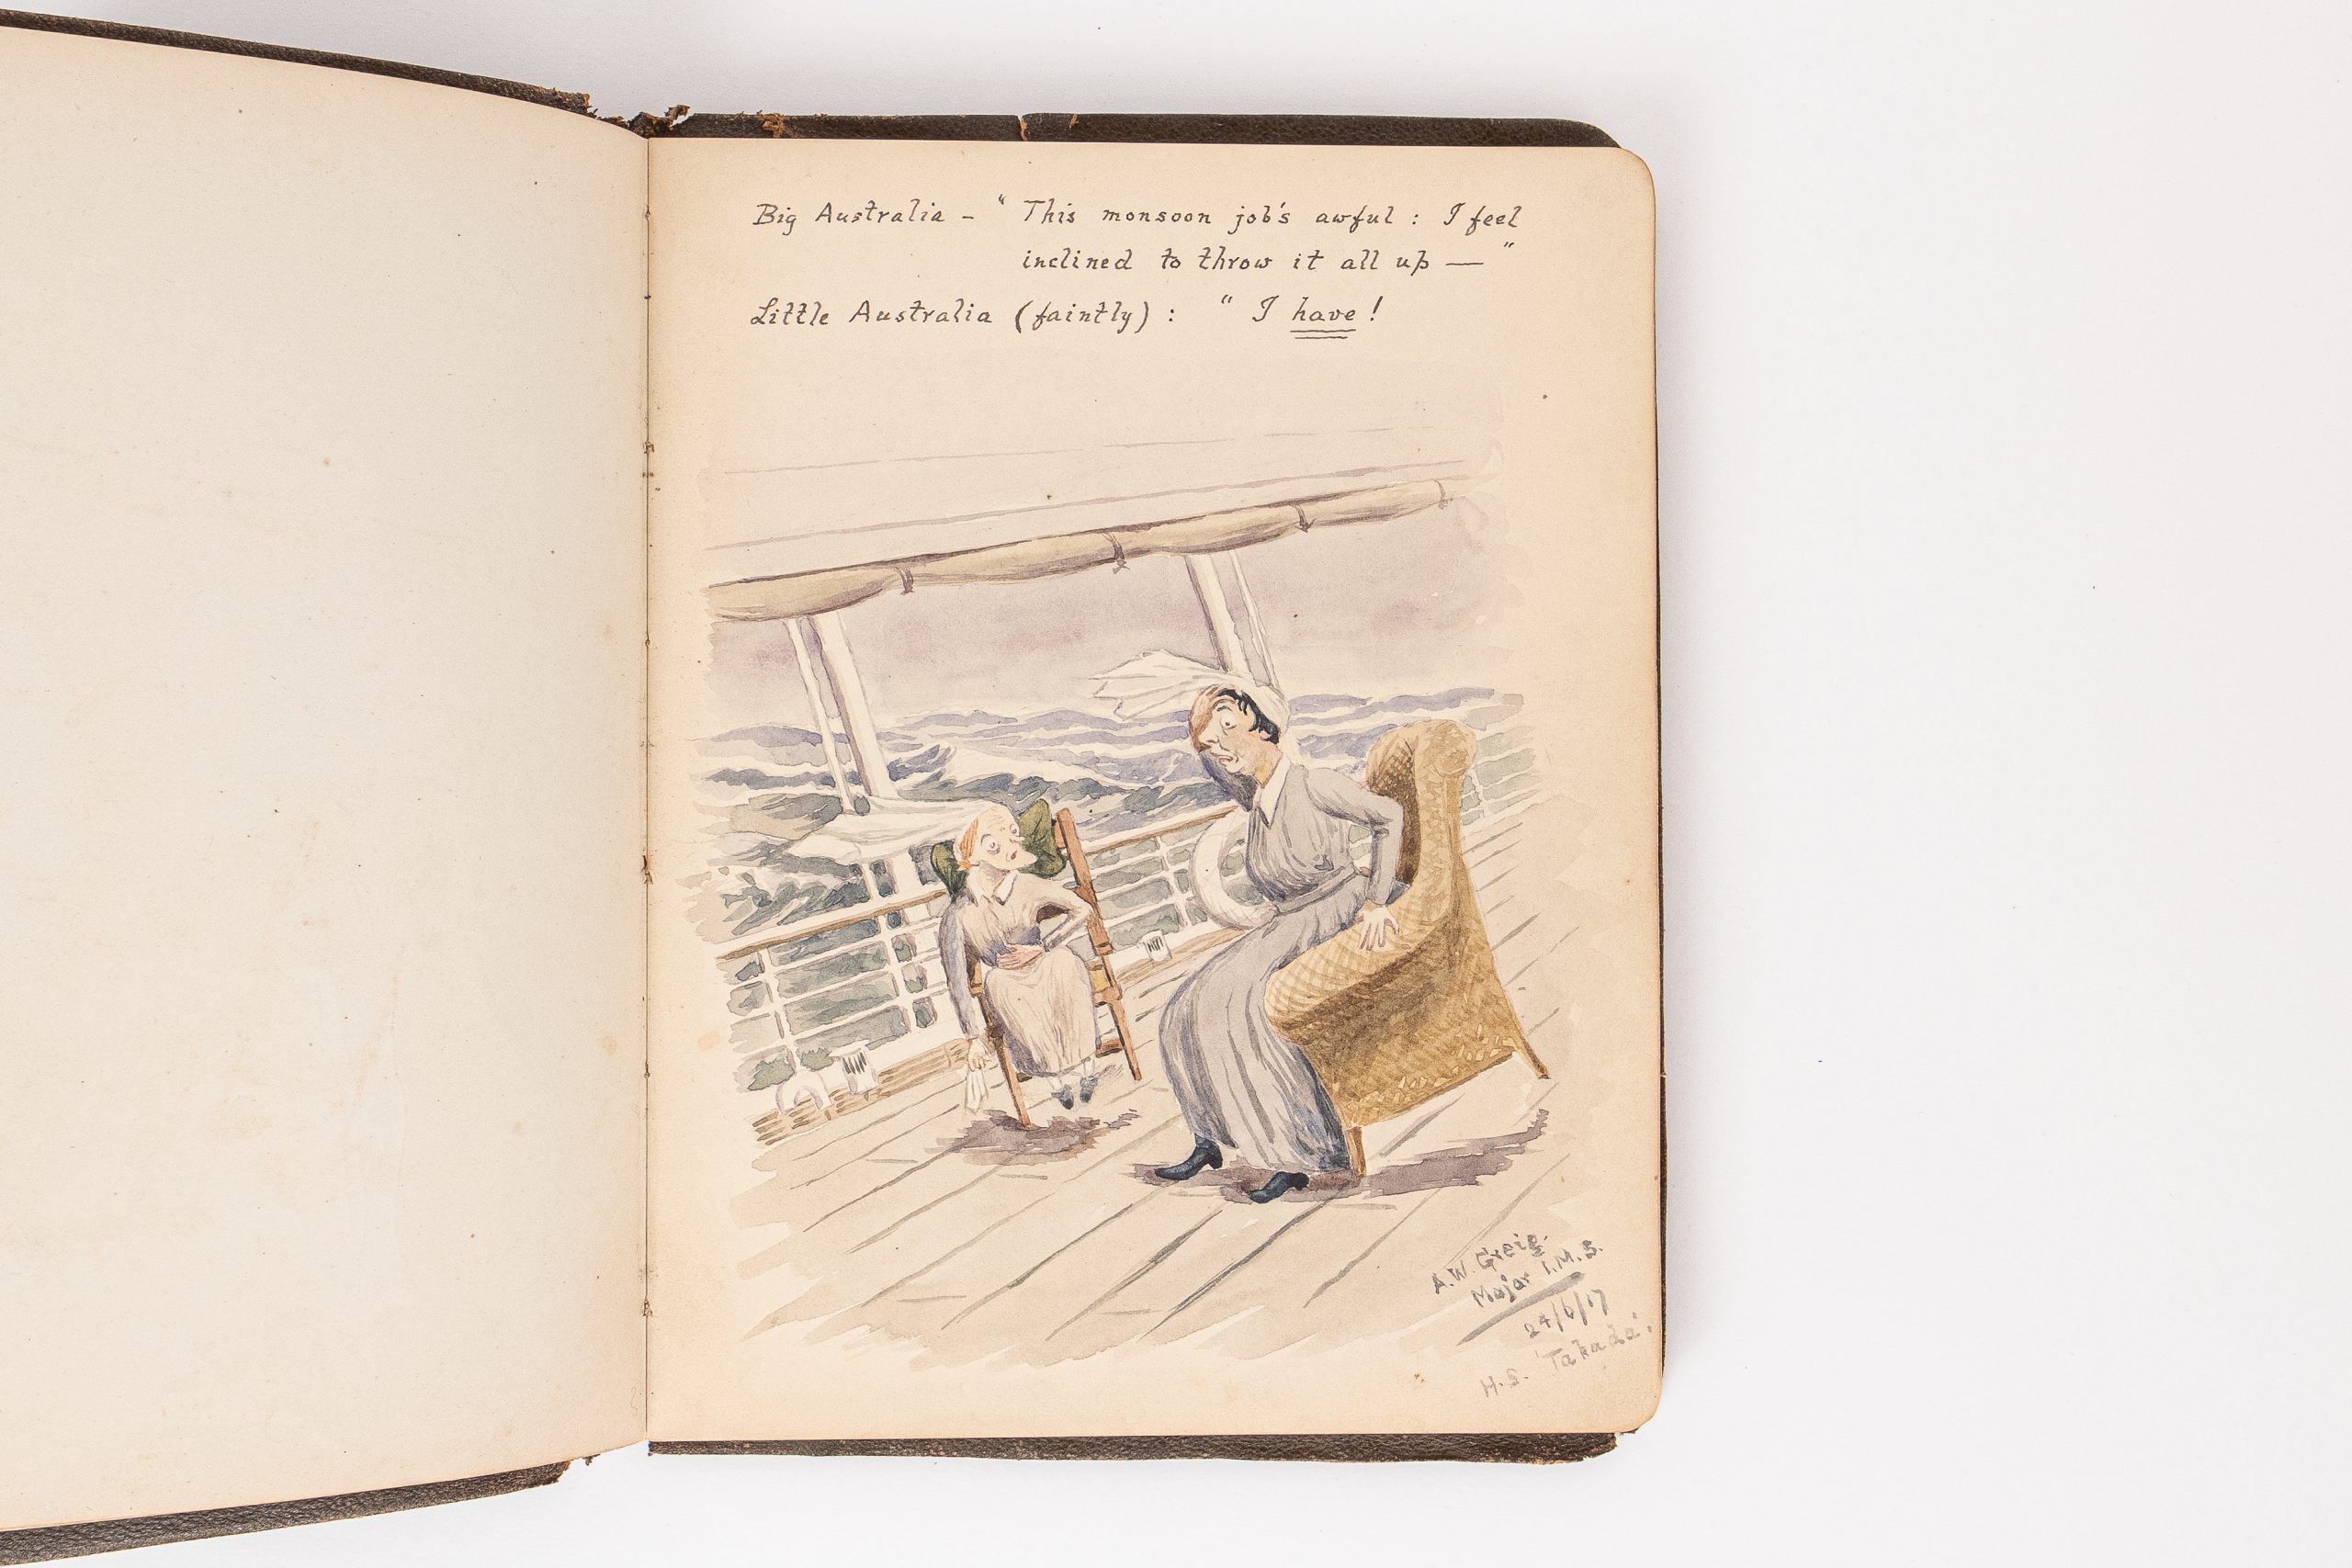 Big Australia - " This monsoon job's awful : I feel
inclined to throw it all up — "
Little Australia (faintly) : " I have !
A.W. Greig.
Major I.M.S.
24/6/17
H.S. 'Takada'.